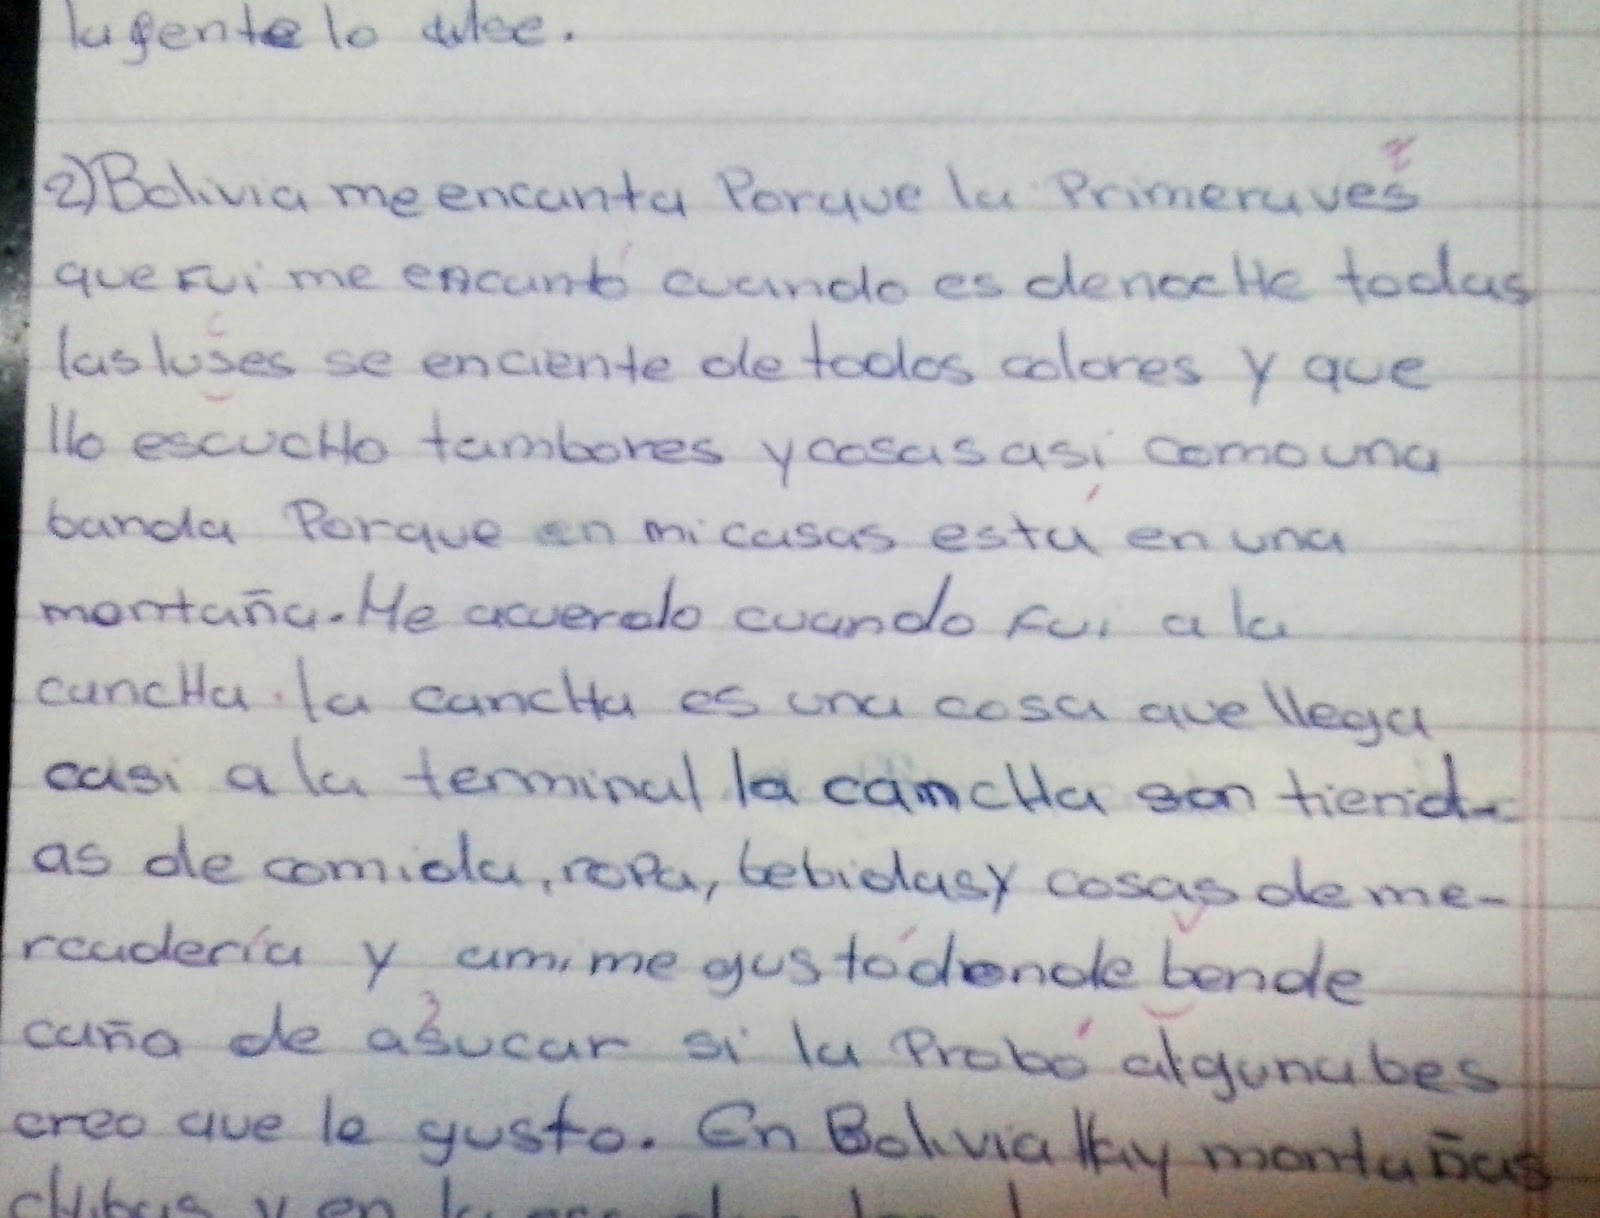 la gente lo dulce.
2) Bolivia me encanta Porque la Primera ves
que Fui me encantó cuando es de nocHe todas
las luses se enciente de todos colores y que
llo escucHo tambores y cosas asi como una
banda Porque en mi casas está en una
montaña. Me acuerdo cuando Fui a la
cancHa. la cancHa es una cosa que llega
casi a la terminal la cancHa son tiend-
as de comida, ropa, bebidas y cosas de me-
rcadería y a mi me gustó donde bende
caña de asucar si la Probó alguna bes
creo que le gusto. En Bolivia Hay montañas
y en la